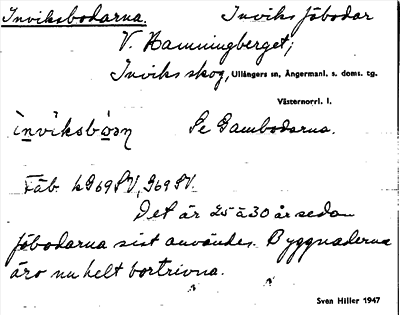 Inviksbodarna. Inviks fäbodar
V. Hamningberget;
Inviks skog, Ullångers sn, Ångermanl. s. doms. tg.
Västernorrl. l.
ìnvìksbòan Se Gambodarna.
Fäb. k G69 SV, J69 SV.
Det är 25 à 30 år sedan
fäbodarna sist användes. Byggnaderna
äro nu helt bortrivna.
Sven Hiller 1947